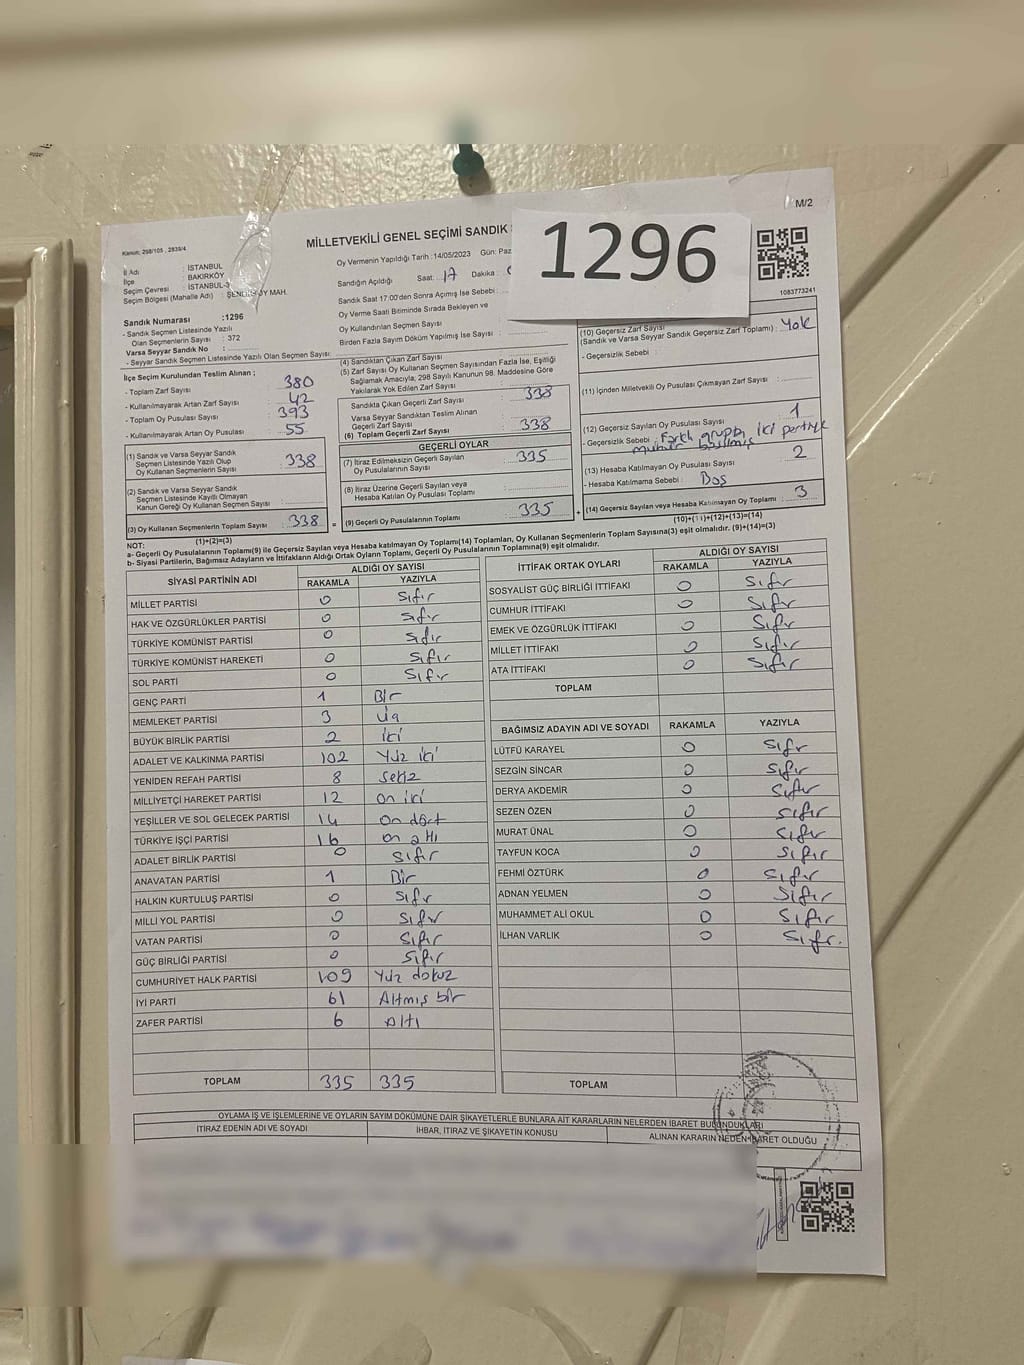 M/2
Kanun: 298/105 , 2839/4
MİLLETVEKİLİ GENEL SEÇİMİ SANDIK
1296
1083773241
İl Adı : İSTANBUL
İlçe : BAKIRKÖY
Seçim Çevresi : İSTANBUL-3
Seçim Bölgesi (Mahalle Adı) : MAH.
Oy Vermenin Yapıldığı Tarih : 14/05/2023 Gün: Paz
Sandığın Açıldığı Saat: 17 Dakika :
Sandık Saat 17:00'den Sonra Açılmış İse Sebebi :
Oy Verme Saati Bitiminde Sırada Bekleyen ve
Oy Kullandırılan Seçmen Sayısı
Birden Fazla Sayım Döküm Yapılmış İse Sayısı :
Sandık Numarası : 1296
- Sandık Seçmen Listesinde Yazılı
Olan Seçmenlerin Sayısı : 372
Varsa Seyyar Sandık No :
- Seyyar Sandık Seçmen Listesinde Yazılı Olan Seçmen Sayısı:
İlçe Seçim Kurulundan Teslim Alınan ;
- Toplam Zarf Sayısı : 380
- Kullanılmayarak Artan Zarf Sayısı : 42
- Toplam Oy Pusulası Sayısı : 393
- Kullanılmayarak Artan Oy Pusulası : 55
(1) Sandık ve Varsa Seyyar Sandık
Seçmen Listesinde Yazılı Olup
Oy Kullanan Seçmenlerin Sayısı : 338
(2) Sandık ve Varsa Seyyar Sandık
Seçmen Listesinde Kayıtlı Olmayan
Kanun Gereği Oy Kullanan Seçmen Sayısı :
(3) Oy Kullanan Seçmenlerin Toplam Sayısı : 338
(1)+(2)=(3)
(4) Sandıktan Çıkan Zarf Sayısı :
(5) Zarf Sayısı Oy Kullanan Seçmen Sayısından Fazla İse, Eşitliği
Sağlamak Amacıyla, 298 Sayılı Kanunun 98. Maddesine Göre
Yakılarak Yok Edilen Zarf Sayısı :
Sandıkta Çıkan Geçerli Zarf Sayısı : 338
Varsa Seyyar Sandıktan Teslim Alınan
Geçerli Zarf Sayısı :
(6) Toplam Geçerli Zarf Sayısı : 338
GEÇERLİ OYLAR
(7) İtiraz Edilmeksizin Geçerli Sayılan
Oy Pusulalarının Sayısı : 335
(8) İtiraz Üzerine Geçerli Sayılan veya
Hesaba Katılan Oy Pusulası Toplamı :
= (9) Geçerli Oy Pusulalarının Toplamı : 335 +
(10) Geçersiz Zarf Sayısı
(Sandık ve Varsa Seyyar Sandık Geçersiz Zarf Toplamı) : Yok
- Geçersizlik Sebebi :
(11) İçinden Milletvekili Oy Pusulası Çıkmayan Zarf Sayısı :
(12) Geçersiz Sayılan Oy Pusulası Sayısı : 1
- Geçersizlik Sebebi : Farklı iki partiye
mühür basılmış
(13) Hesaba Katılmayan Oy Pusulası Sayısı : 2
- Hesaba Katılmama Sebebi : Boş
(14) Geçersiz Sayılan veya Hesaba Katılmayan Oy Toplamı : 3
(10)+(11)+(12)+(13)=(14)
NOT:
a- Geçerli Oy Pusulalarının Toplamı(9) ile Geçersiz Sayılan veya Hesaba katılmayan Oy Toplamı(14) Toplamları, Oy Kullanan Seçmenlerin Toplam Sayısına(3) eşit olmalıdır. (9)+(14)=(3)
b- Siyasi Partilerin, Bağımsız Adayların ve İttifakların Aldığı Ortak Oyların Toplamı, Geçerli Oy Pusulalarının Toplamına(9) eşit olmalıdır.
SİYASİ PARTİNİN ADI ALDIĞI OY SAYISI
RAKAMLA YAZIYLA
MİLLET PARTİSİ 0 Sıfır
HAK VE ÖZGÜRLÜKLER PARTİSİ 0 Sıfır
TÜRKİYE KOMÜNİST PARTİSİ 0 Sıfır
TÜRKİYE KOMÜNİST HAREKETİ 0 Sıfır
SOL PARTİ 0 Sıfır
GENÇ PARTİ 1 Bir
MEMLEKET PARTİSİ 3 Üç
BÜYÜK BİRLİK PARTİSİ 2 İki
ADALET VE KALKINMA PARTİSİ 102 Yüz iki
YENİDEN REFAH PARTİSİ 8 Sekiz
MİLLİYETÇİ HAREKET PARTİSİ 12 on iki
YEŞİLLER VE SOL GELECEK PARTİSİ 14 on dört
TÜRKİYE İŞÇİ PARTİSİ 16 on altı
ADALET BİRLİK PARTİSİ 0 Sıfır
ANAVATAN PARTİSİ 1 Bir
HALKIN KURTULUŞ PARTİSİ 0 Sıfır
MİLLİ YOL PARTİSİ 0 Sıfır
VATAN PARTİSİ 0 Sıfır
GÜÇ BİRLİĞİ PARTİSİ 0 Sıfır
CUMHURİYET HALK PARTİSİ 109 Yüz dokuz
İYİ PARTİ 61 Altmış bir
ZAFER PARTİSİ 6 Altı
TOPLAM 335 335
İTTİFAK ORTAK OYLARI ALDIĞI OY SAYISI
RAKAMLA YAZIYLA
SOSYALİST GÜÇ BİRLİĞİ İTTİFAKI 0 Sıfır
CUMHUR İTTİFAKI 0 Sıfır
EMEK VE ÖZGÜRLÜK İTTİFAKI 0 Sıfır
MİLLET İTTİFAKI 0 Sıfır
ATA İTTİFAKI 0 Sıfır
TOPLAM
BAĞIMSIZ ADAYIN ADI VE SOYADI RAKAMLA YAZIYLA
LÜTFÜ KARAYEL 0 Sıfır
SEZGİN SİNCAR 0 Sıfır
DERYA AKDEMİR 0 Sıfır
SEZEN ÖZEN 0 Sıfır
MURAT ÜNAL 0 Sıfır
TAYFUN KOCA 0 Sıfır
FEHMİ ÖZTÜRK 0 Sıfır
ADNAN YELMEN 0 Sıfır
MUHAMMET ALİ OKUL 0 Sıfır
İLHAN VARLIK 0 Sıfır.
TOPLAM
OYLAMA İŞ VE İŞLEMLERİNE VE OYLARIN SAYIM DÖKÜMÜNE DAİR ŞİKAYETLERLE BUNLARA AİT KARARLARIN NELERDEN İBARET BULUNDUKLARI
İTİRAZ EDENİN ADI VE SOYADI İHBAR, İTİRAZ VE ŞİKAYETİN KONUSU ALINAN KARARIN NEDEN İBARET OLDUĞU